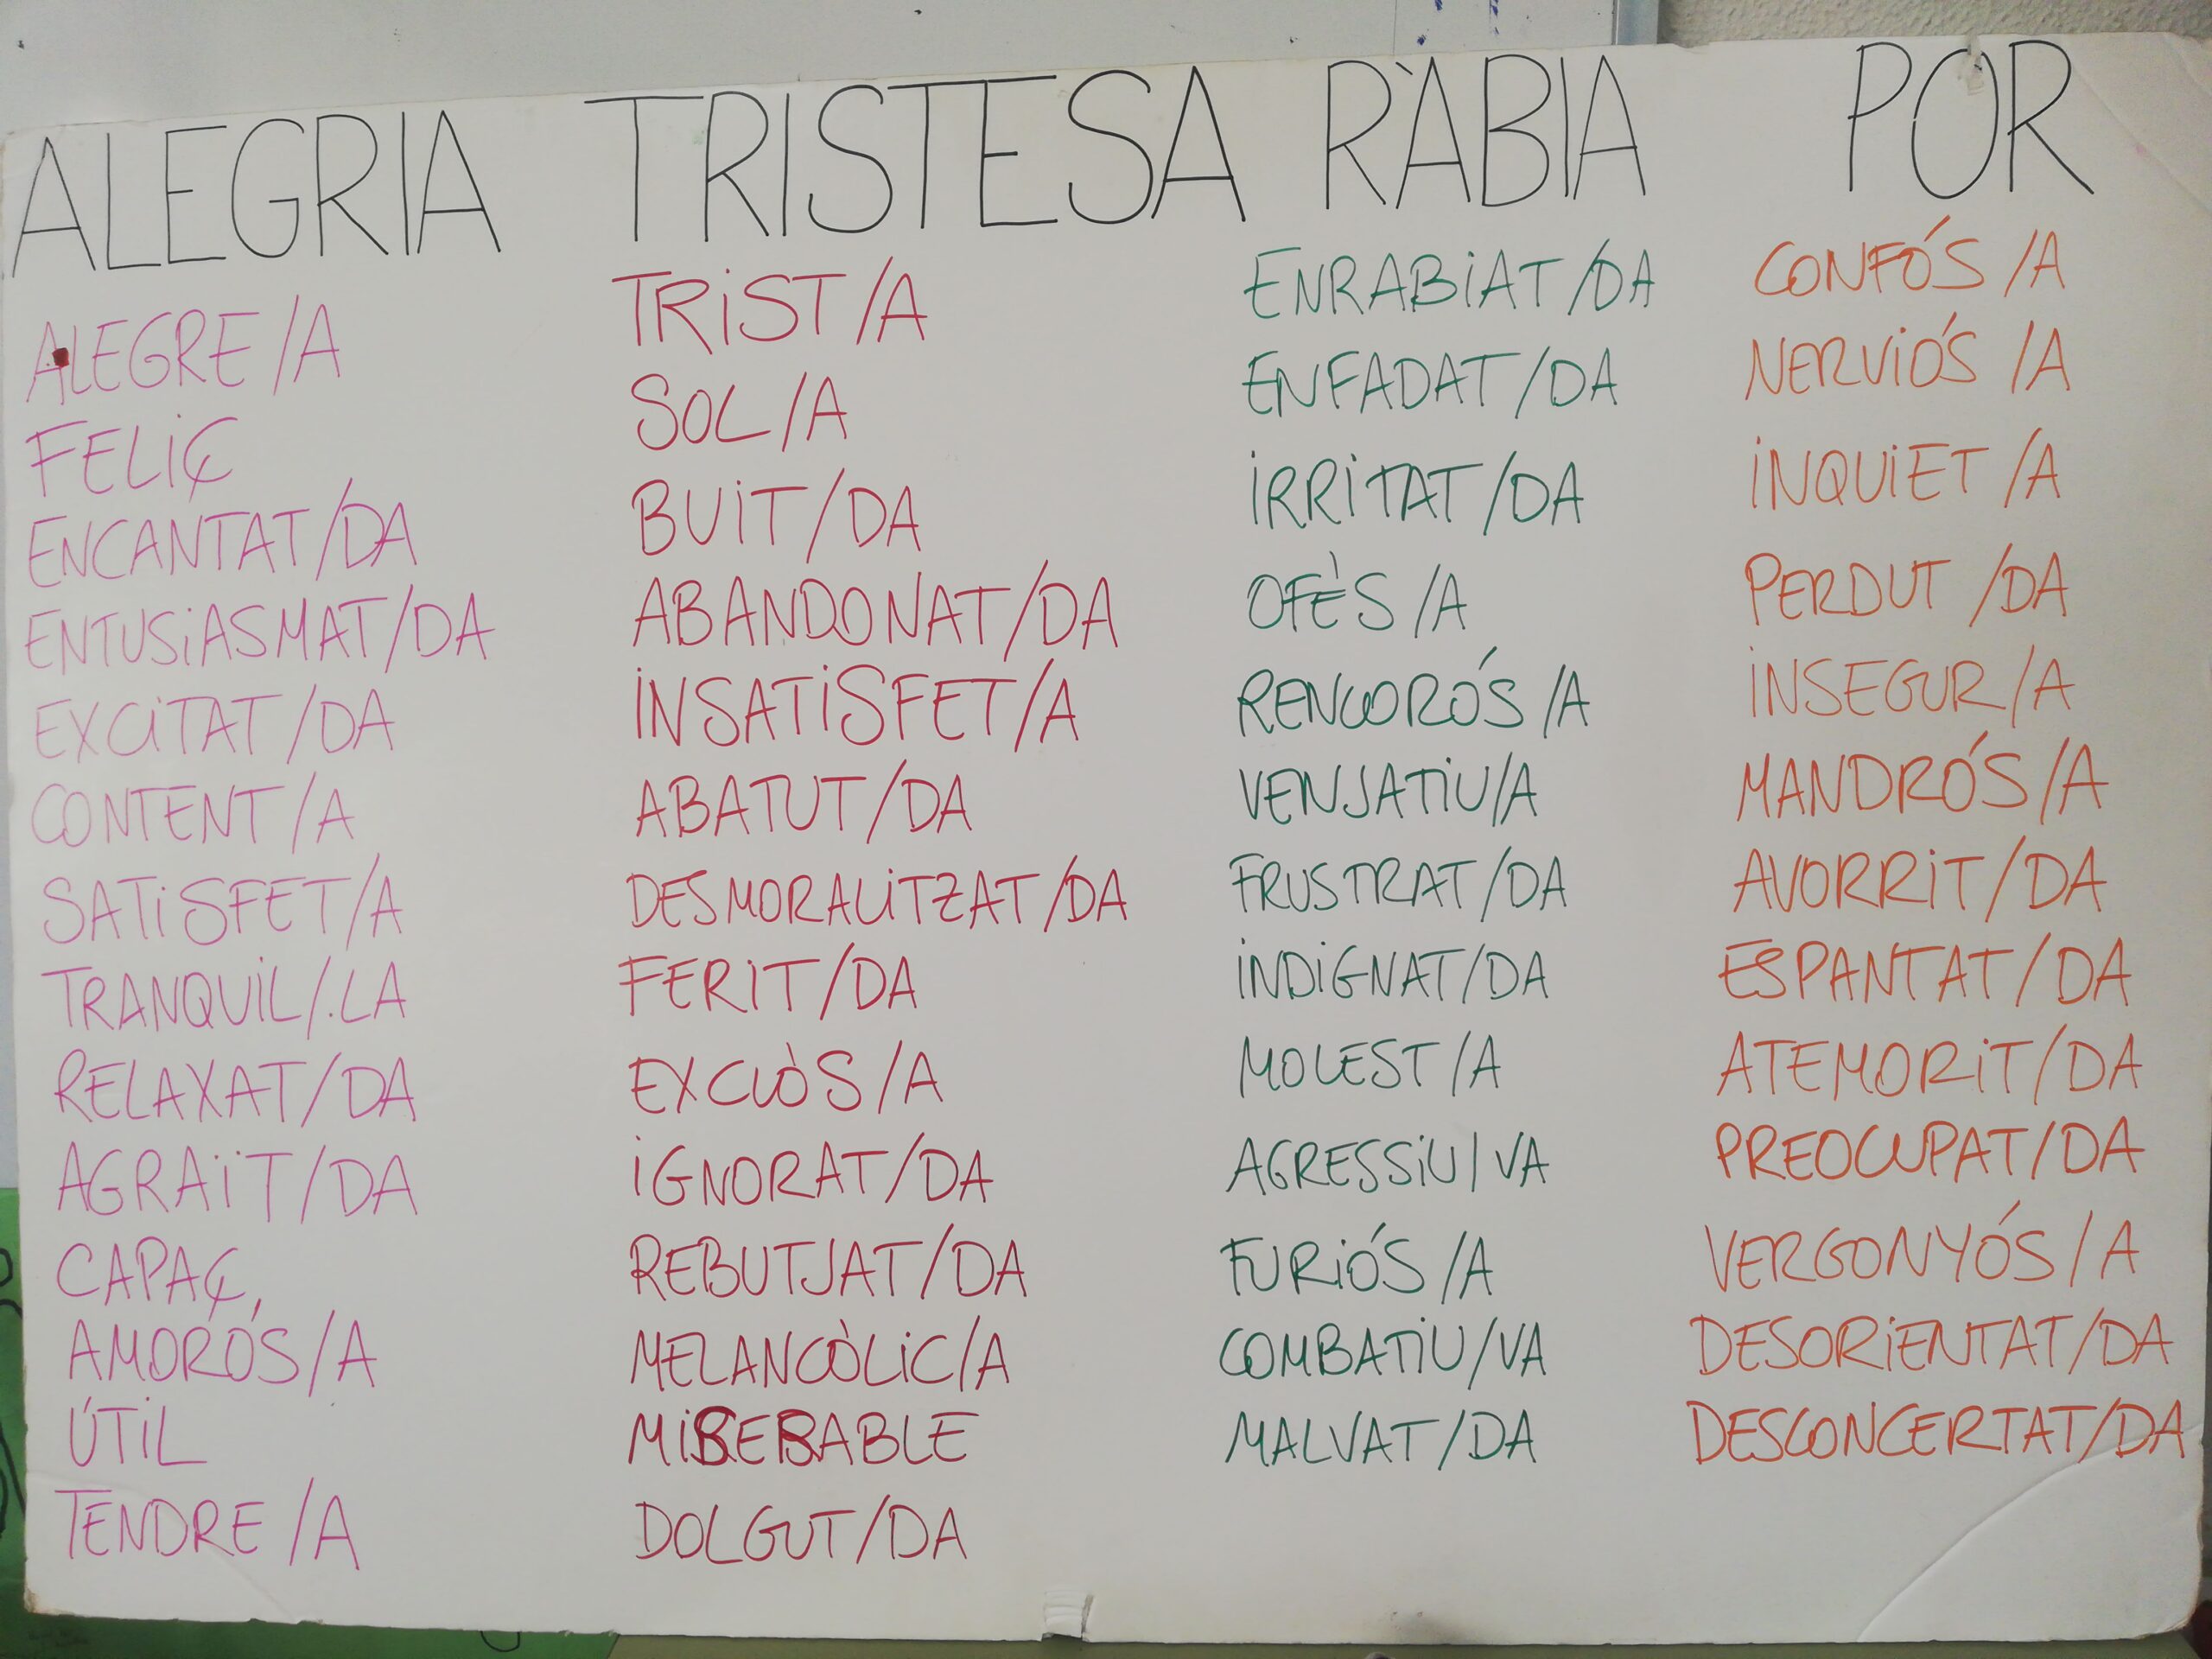 ALEGRIA
ALEGRE/A
FELIÇ
ENCANTAT/DA
ENTUSIASMAT/DA
EXCITAT/DA
CONTENT/A
SATISFET/A
TRANQUIL/.LA
RELAXAT/DA
AGRAÏT/DA
CAPAÇ,
AMORÓS/A
ÚTIL
TENDRE/A
TRISTESA
TRIST/A
SOL/A
BUIT/DA
ABANDONAT/DA
INSATISFET/A
ABATUT/DA
DESMORALITZAT/DA
FERIT/DA
EXCLÒS/A
IGNORAT/DA
REBUTJAT/DA
MELANCÒLIC/A
MISERABLE
DOLGUT/DA
RÀBIA
ENRABIAT/DA
ENFADAT/DA
IRRITAT/DA
OFÈS/A
RENCORÓS/A
VENJATIU/A
FRUSTRAT/DA
INDIGNAT/DA
MOLEST/A
AGRESSIU/VA
FURIÓS/A
COMBATIU/VA
MALVAT/DA
POR
CONFÓS/A
NERVIÓS/A
INQUIET/A
PERDUT/DA
INSEGUR/A
MANDRÓS/A
AVORRIT/DA
ESPANTAT/DA
ATEMORIT/DA
PREOCUPAT/DA
VERGONYÓS/A
DESORIENTAT/DA
DESCONCERTAT/DA